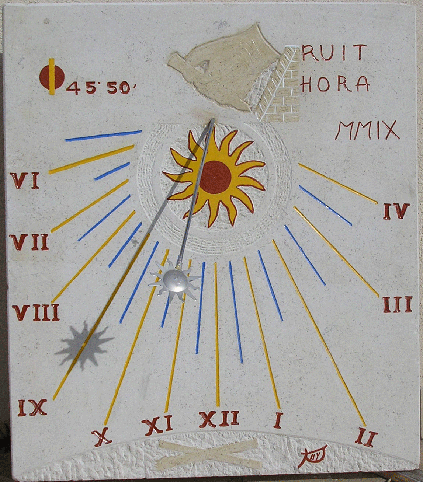 RUIT
HORA
MMIX
45° 50'
VI
VII
VIII
IX
X
XI
XII
I
II
III
IV